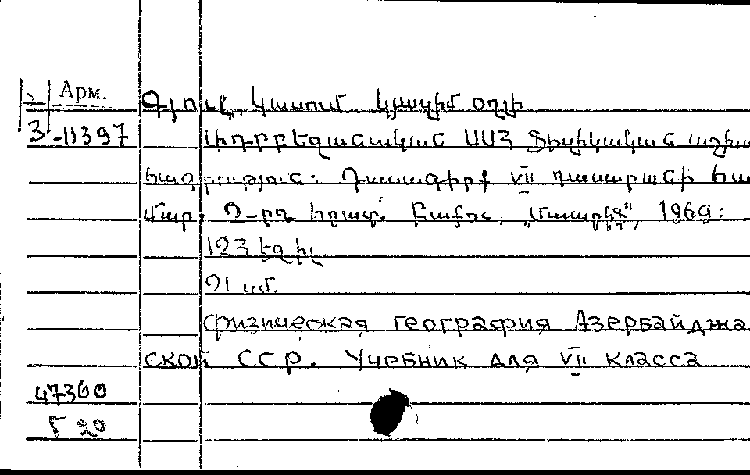 Арм.
Գյուլ, Կասում Կյազիմ օղլի
3-11397
Ադրբեջանական ՍՍՀ Ֆիզիկական աշխա
հագրություն: Դասագիրք VII դասարանի հա
մար: 2-րդ հրատ. Բաքու, „Մաարիֆ", 1969:
123 եջ իլ.
21 սմ.
Физическая география Азербайджа
ской ССР. Учебник для VII класса
47300
Г 20